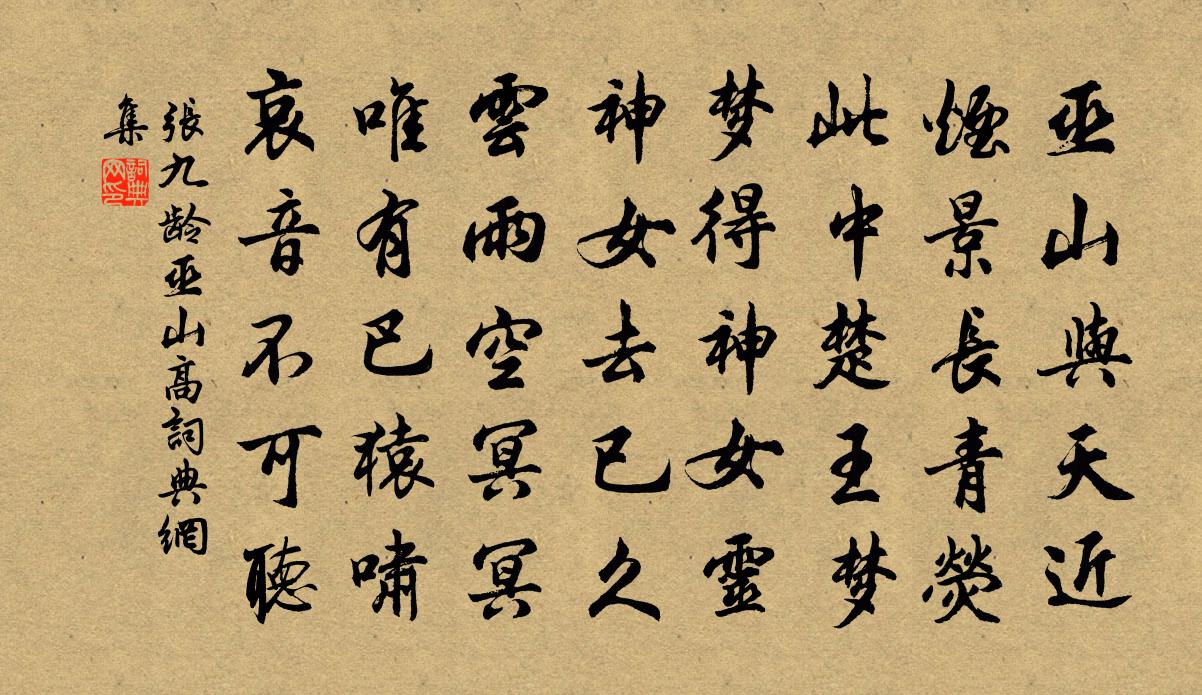 巫山與天近
煙景長青熒
此中楚王梦
梦得神女靈
神女去已久
雲雨空冥冥
唯有巴猿嘯
哀音不可聽
張九龄巫山高詞典網
集
詞典
网印